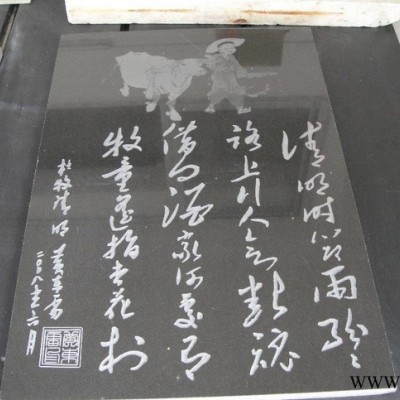 清明时节雨纷纷
路上行人欲断魂
借问酒家何处有
牧童遥指杏花村
杜牧清明 黄东雷
二〇〇八年六月
www.